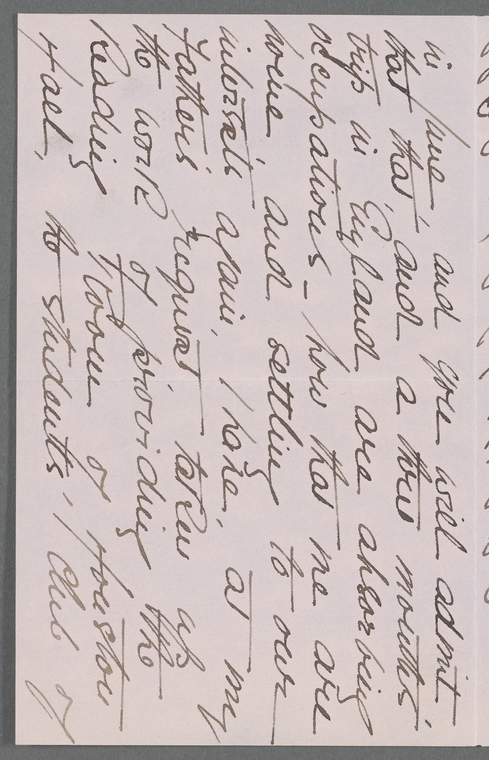 in June, and you will admit
that that, and a three months'
trip in England are absorbing
occupations - now that we are
home and settling to our
interests again, I have, at my
Father's request taken up
the work of providing the
Reading Room of Houston
Hall, the students' Club of